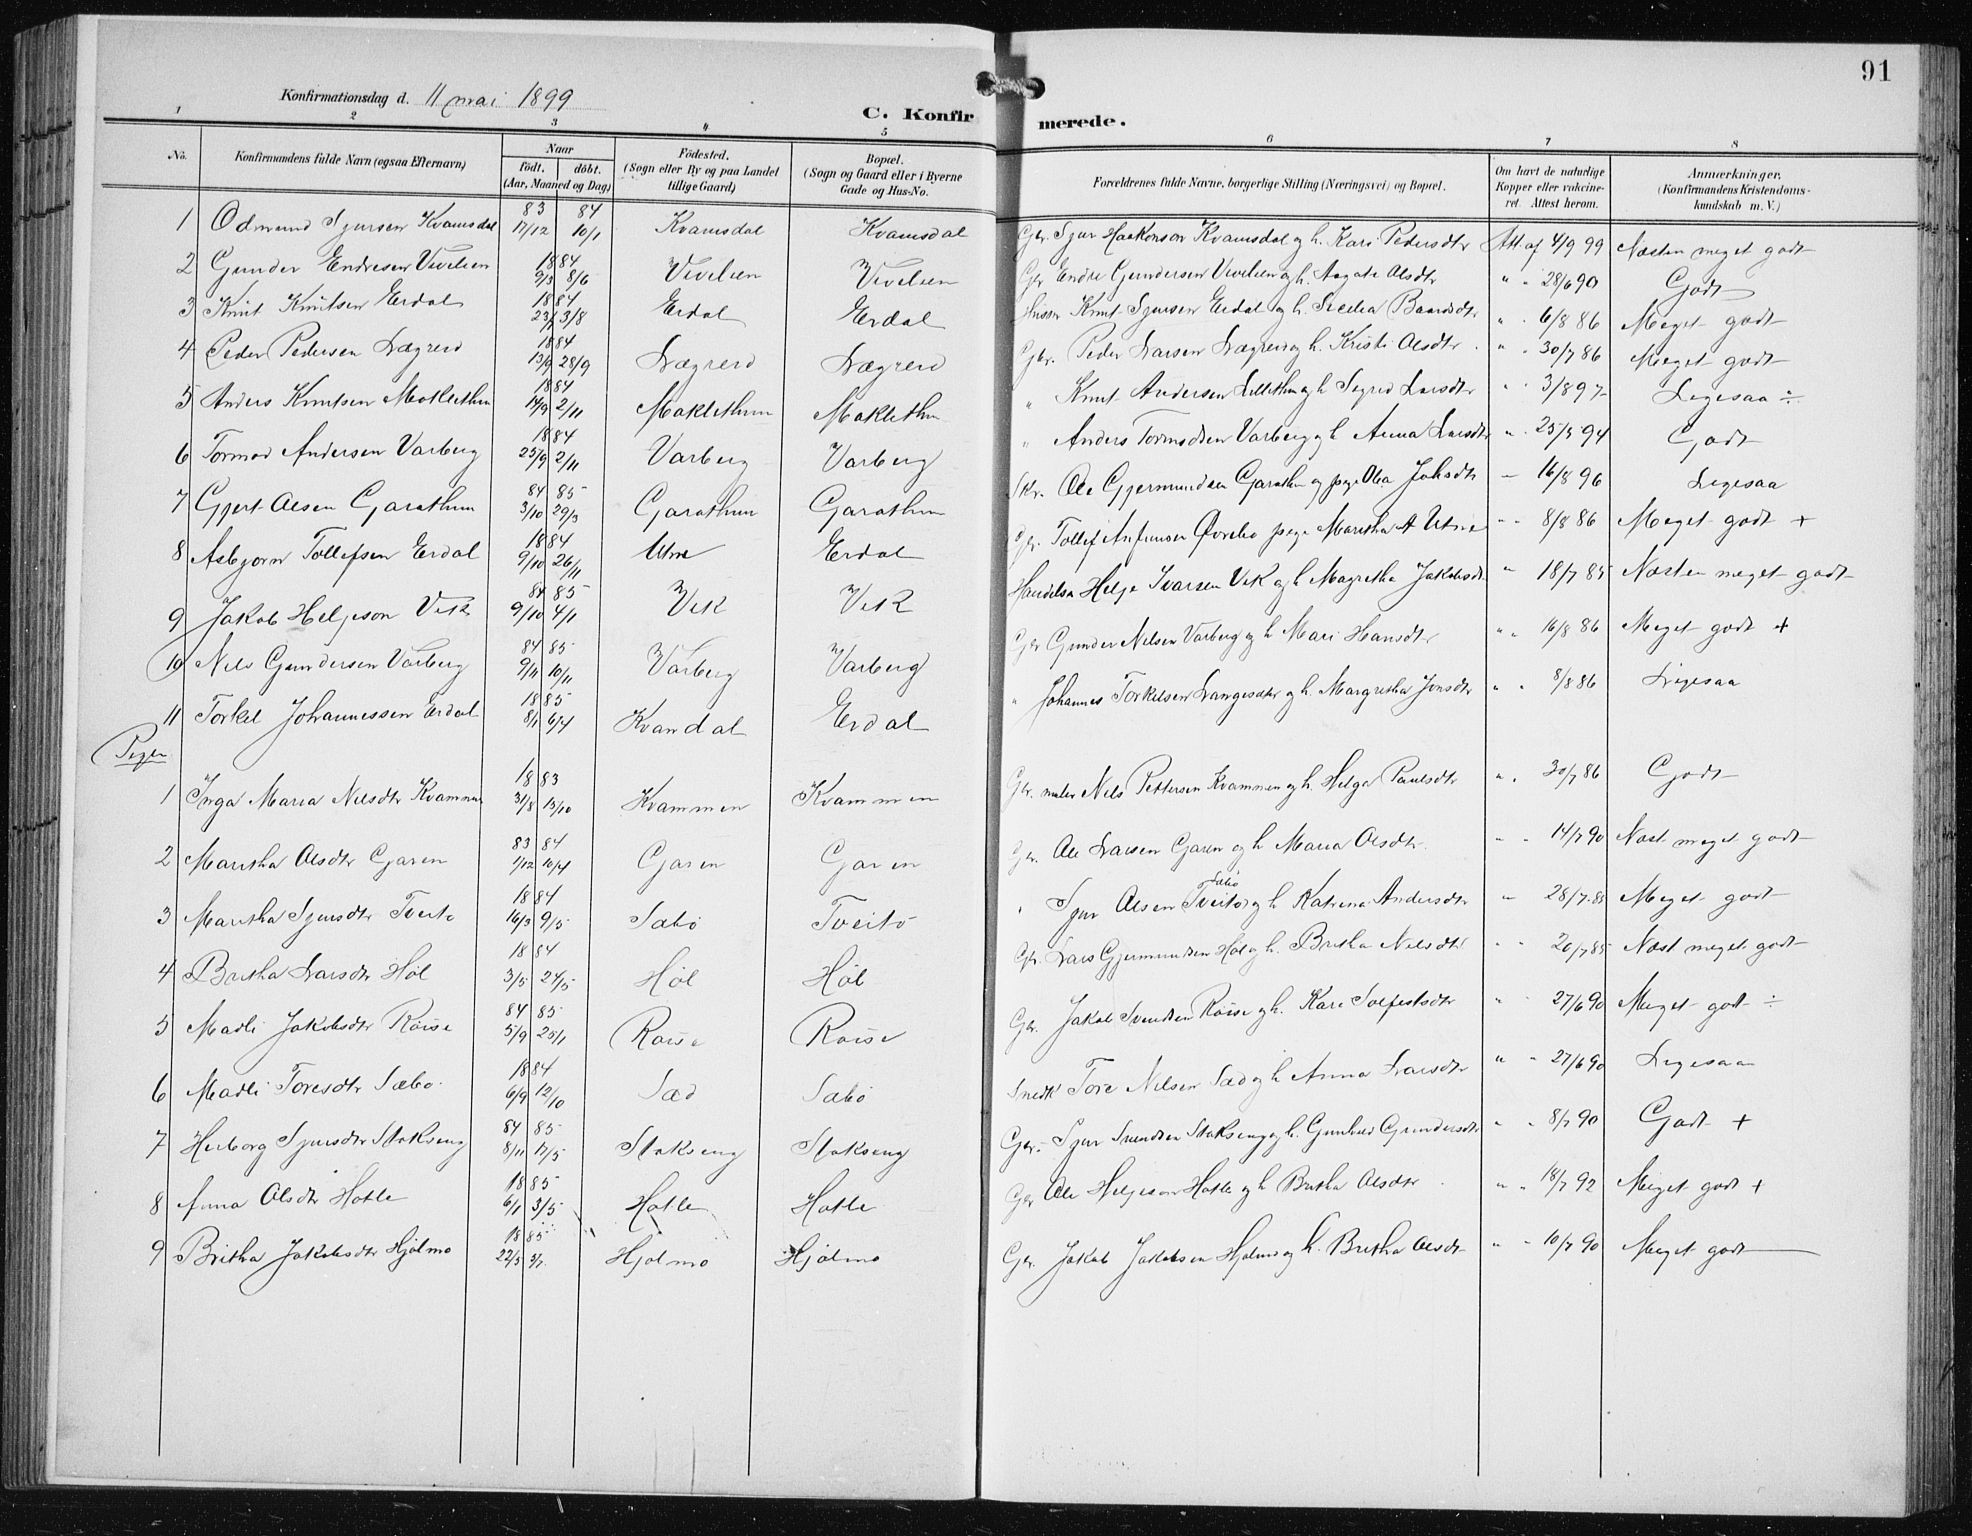 91
Konfirmationsdag d. 11 mai 1899
C. Konfirmerede.
1 2 3 4 5 6 7 8
No. Konfirmandens fulde Navn (ogsaa Efternavn) Naar født. døbt. (Aar, Maaned og Dag) Födested. (Sogn eller By og paa Landet tillige Gaard) Bopæl. (Sogn og Gaard eller i Byerne Gade og Hus-No. Forældrenes fulde Navne, borgerlige Stilling (Næringsvei) og Bopæl. Om havt de naturlige Kopper eller vakcineret. Attest herom. Anmærkninger. (Konfirmandens Kristendomskundskab m. V.)
1 Odmund Sjursen Kvamsdal 83 17/12 84 10/1 Kvamsdal Kvamsdal Gbr. Sjur Haakonson Kvamsdal og h. Kari Pedersdtr Att. af 4/9 99 Næsten meget godt
2 Gunder Endresen Vivelien 1884 9/3 8/6 Vivelien Vivelien Gbr Endre Gundersen Vivelien og h. Aagate Olsdtr " " 28/6 90 Godt
3 Knut Knutsen Erdal 1884 3/8 Erdal Erdal Husm Knut Sjursen Erdal og h. Baardsdtr " . 6/8 86 Meget godt
4 Peder Pedersen Lægreid 1884 13/9 28/9 Lægreid Lægreid Gbr. Peder Larsen Lægreid og h. Kristi Olsdtr " . 30/7 86 Meget godt
5 Anders Knutsen Moklethun 1884 14/9 2/11 Moklethun Moklethun " Knut Andersen Lillethun og h Sigrid Larsdtr " . 3/8 97 Ligesaa ÷
6 Tormod Andersen Varberg 1884 25/9 2/11 Varberg Varberg " Anders Tormodsen Varberg og h Anna Larsdtr " . 25/5 94 Godt
7 Gjert Olsen Garathun 84 3/10 85 29/3 Garathun Garathun Ole Gjermundsen Garathun og pige Olea Johsdtr 16/8 96 Ligesaa
8 Asbjørn Tollefsen Erdal 1884 9/10 26/11 Utne Erdal Gbr. Tollef Anfinsen Øvrebø pige Maritha A Utne " 8/8 86 Meget godt +
9 Jakob Heljeson Vik 84 9/10 85 4/1 Vik Vik Handelsm Helje Ivarsen Vik og h Magretha Jakobsdt " 18/7 85 Næsten meget godt
10 Nils Gundersen Varberg 84 9/11 85 10/11 Varberg Varberg Gbr Gunder Nilsen Varberg og h Mari Hansdtr " " 16/8 86 Meget godt +
11 Torkel Johannessen Erdal 1885 8/1 6/4 Kvandal Erdal " Johannes Torkelsen og h. Margretha Jonsdtr " . 8/8 86 Ligesaa
Piger
1 Inga Maria Nilsdtr Kvammen 1883 31/8 13/10 Kvammen Kvammen Gbr. maler Nils Pettersen Kvammen og h. Helga Paulsdtr " . 30/7 86 Godt
2 Maritha Olsdtr Garen 83 1/12 84 10/4 Garen Garen Gbr. Ole Larsen Garen og h Maria Olsdtr. " " 14/7 90 Næst meget godt
3 Maritha Sjursdtr Tveito 1884 16/3 9/5 Sæbø Tveito " Sjur Olsen Tveito Sæbø og h Katrina Andersdtr " 28/7 85 Meget godt
4 Britha Larsdtr Høl 1884 3/5 24/5 Høl Høl Gbr. Lars Gjermundsen Høl og h. Britha Nilsdtr " " 20/7 85 Næst meget godt
5 Madli Jakobsdtr Røise 84 5/9 85 25/1 Røise Røise Gbr. Jakob Svendsen Røise og h. Kari Solfestsdtr " 27/6 90 Meget godt ÷
6 Madli Toresdtr Sæbø 1884 6/9 12/10 Sæd Sæbø Snedk Tore Nilsen Sæd og h Anna Larsdtr " " 27/6 90 Ligesaa
7 Herborg Sjursdtr Stokseng 84 8/11 85 17/5 Stokseng Stokseng Gbr. Sjur Svendsen Stokseng og h. Gunhild Gundersdtr " " 8/7 90 Godt +
8 Anna Olsdtr Hotle 1885 6/1 3/5 Hotle Hotle Gbr Ole Heljeson Hotle og h Britha Olsdtr " " 18/7 92 Meget godt +
9 Britha Jakobsdtr Hjølmo 1885 22/5 5/7 Hjølmo Hjølmo Gbr. Jakob Jakobsen Hjølmo og h. Britha Olsdt " " 10/7 90 Meget godt